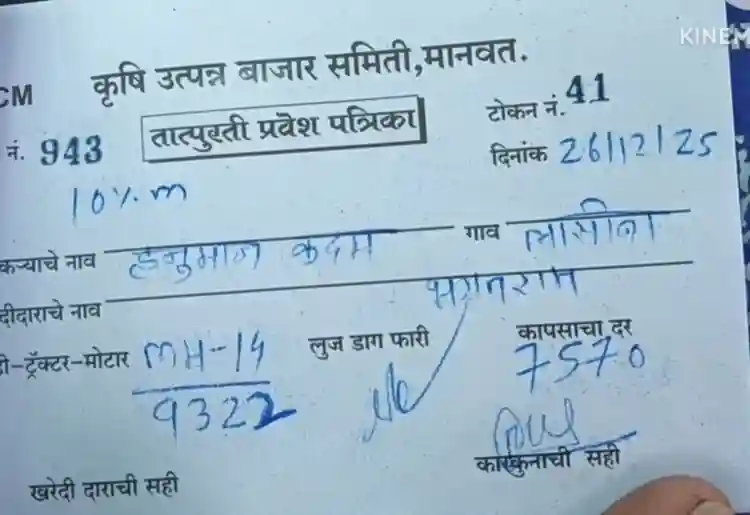 KINEM
CM कृषि उत्पन्न बाजार समिती, मानवत.
नं. 943 तात्पुरती प्रवेश पत्रिका टोकन नं. 41
दिनांक 26/12/25
10%.m
कऱ्याचे नाव हनुमान कदम गाव
दीदाराचे नाव
डी-ट्रॅक्टर-मोटार MH-14 लुज डाग फारी कापसाचा दर
9322 7570
खरेदी दाराची सही कारकुनाची सही